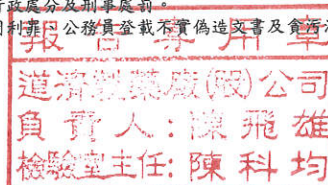 行政處分及刑事處前。
利罪、公務員登載不實偽造文書及貪污
報告專用章
道濟製藥廠(股)公司
負責人:陳飛雄
檢驗室主任:陳科均